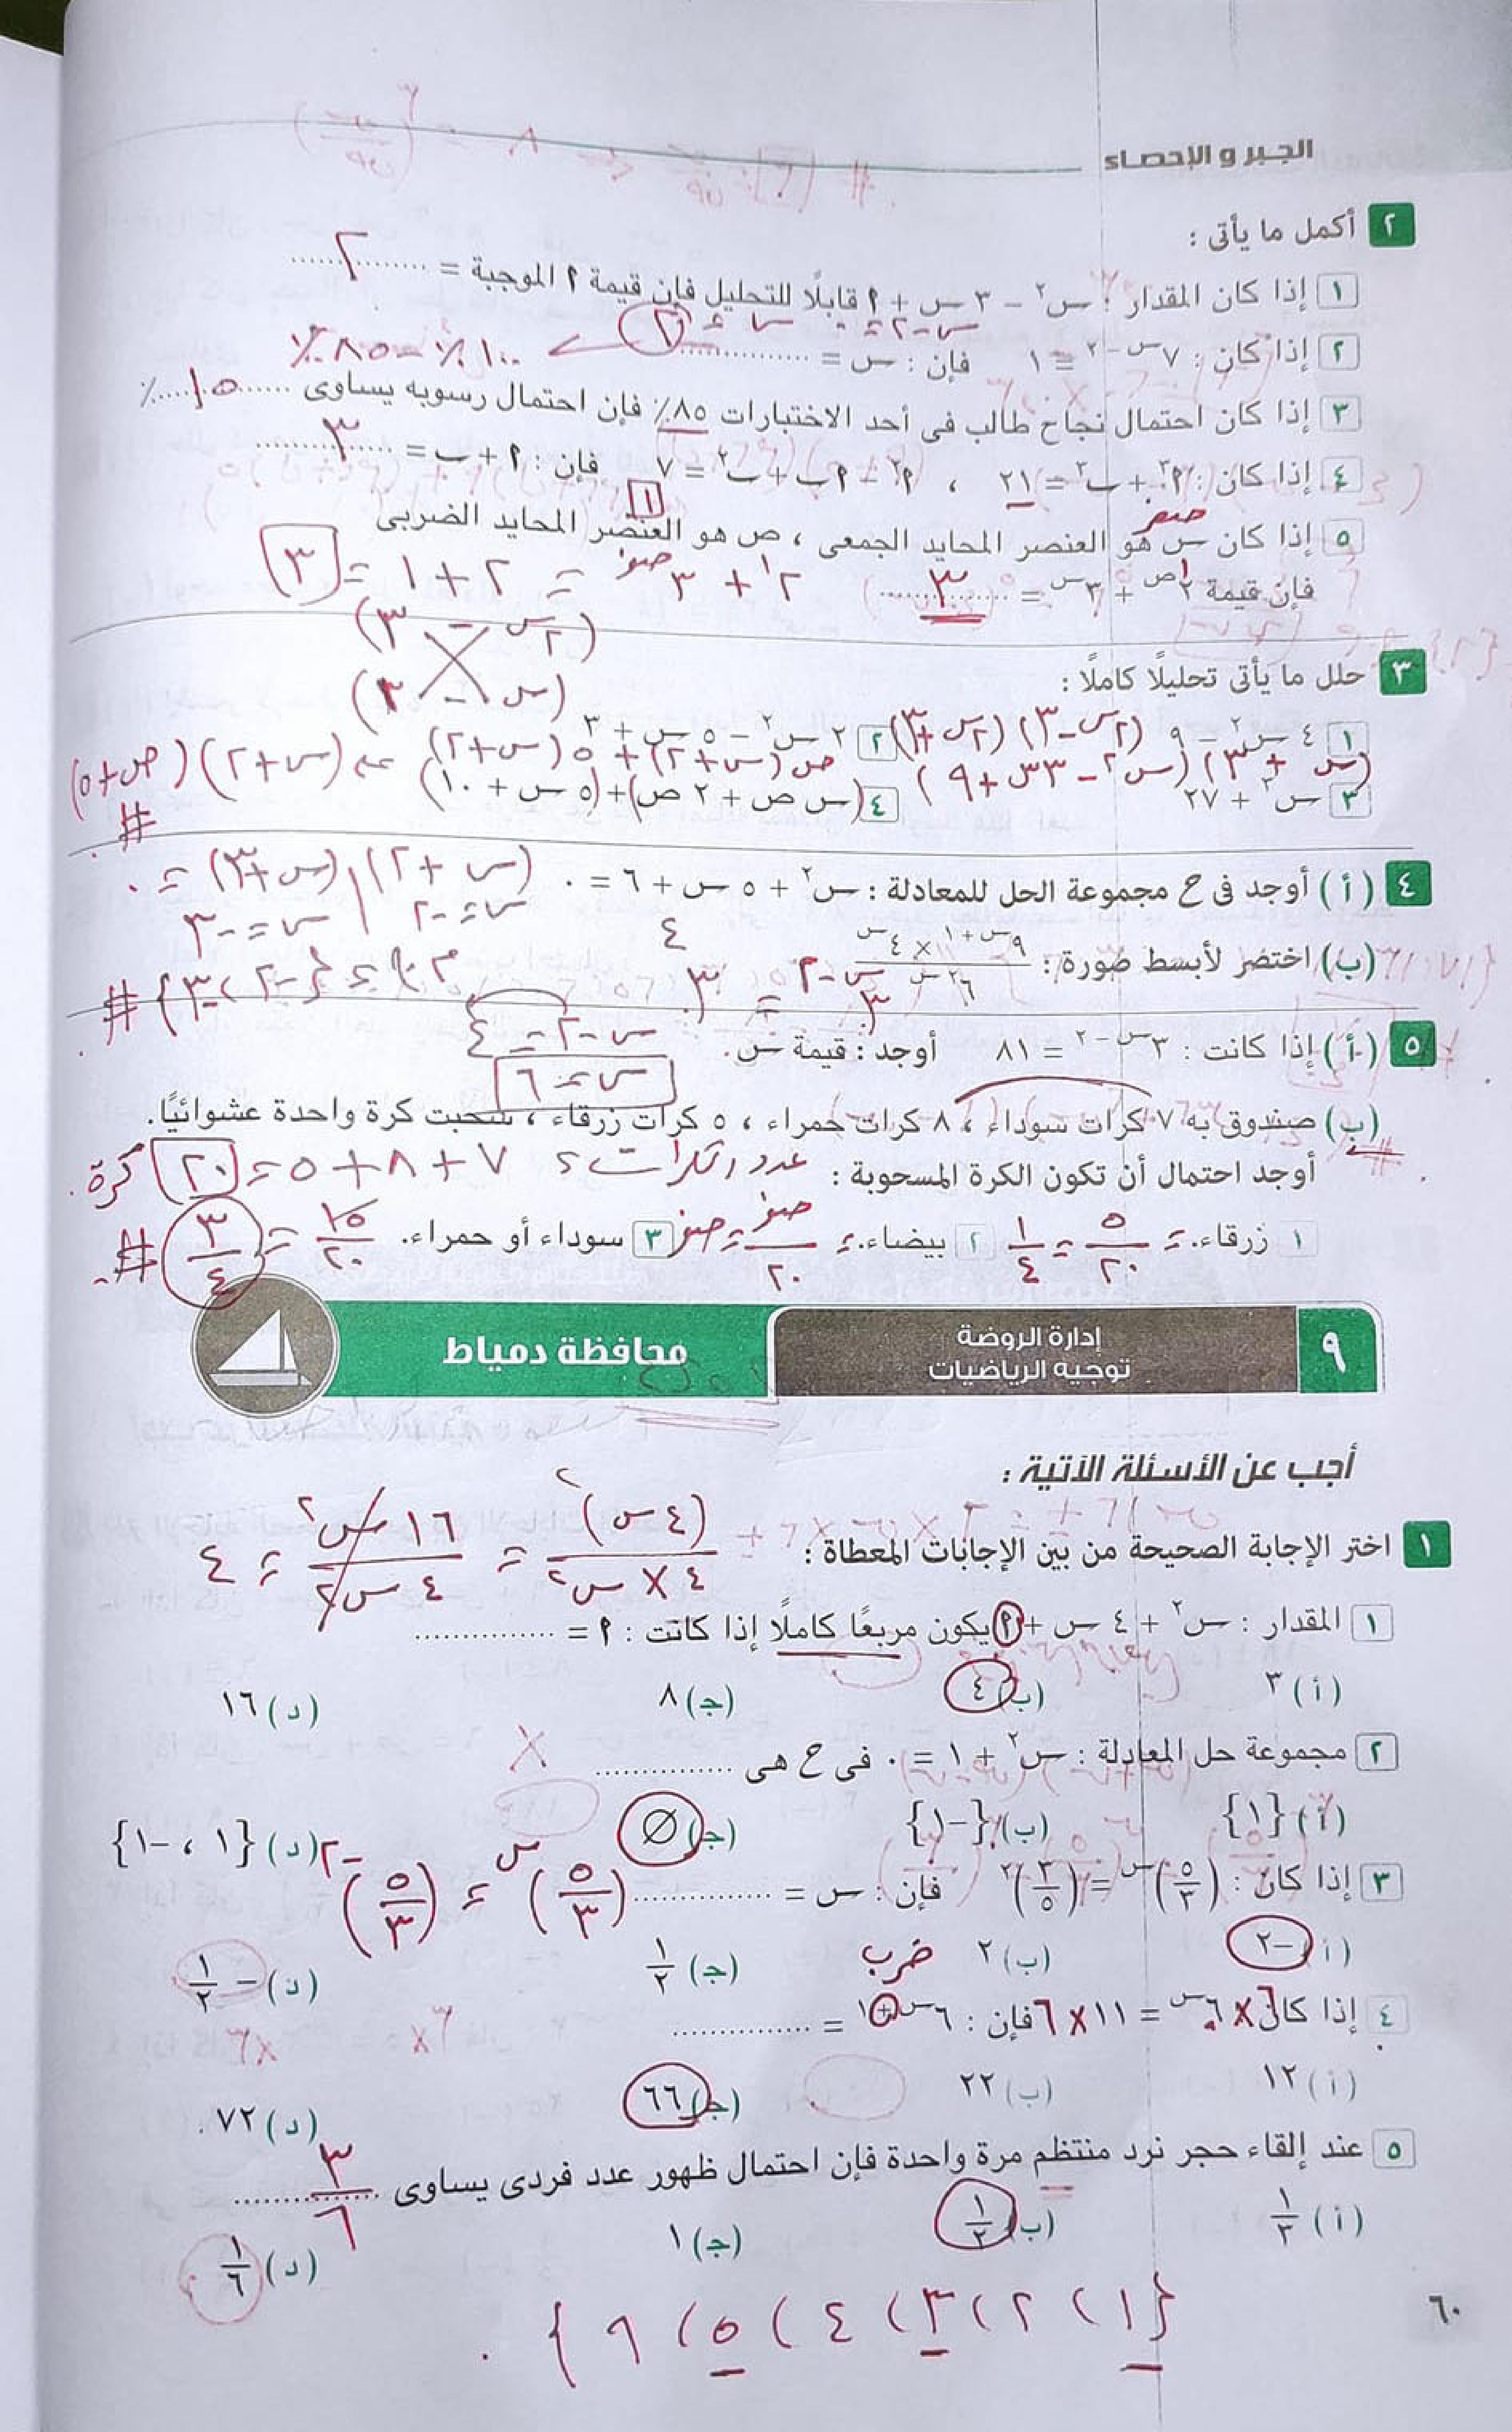 الجبر و الإحصاء
٢ أكمل ما يأتى :
١ إذا كان المقدار : س٢ – ٣ س + ٩ قابلًا للتحليل فإن قيمة ٩ الموجبة = ٢
س - ٢ = ٠ س = ٢
٢ إذا كان : ٧س – ٢ = ١ فإن : س = ٢ ١٠٠٪ - ٨٥٪
٣ إذا كان احتمال نجاح طالب فى أحد الاختبارات ٨٥٪ فإن احتمال رسوبه يساوى ١٥ ٪
٤ إذا كان : ٩٣ + ب٣ = ٢١ ، ٩٢ – ٩ ب + ب٢ = ٧ فإن : ٩ + ب = ٣
صفر ١
٥ إذا كان س هو العنصر المحايد الجمعى ، ص هو العنصر المحايد الضربى
فإن قيمة ٢ص + ٣س = ٣ ٢١ + ٣صفر = ٢ + ١ = ٣
(٢س - ٣)
(س - ١)
٣ حلل ما يأتى تحليلًا كاملًا :
١ ٤ س٢ – ٩ (٢س - ٣) (٢س + ٣) ٢ ٢ س٢ – ٥ س + ٣
(س + ٣) (س٢ - ٣س + ٩) ص (س + ٢) + ٥ (س + ٢) (س + ٢) (ص + ٥)
٣ س٣ + ٢٧ ٤ (س ص + ٢ ص) + (٥ س + ١٠) #
٤ (أ) أوجد فى ح مجموعة الحل للمعادلة : س٢ + ٥ س + ٦ = ٠ (س + ٢) (س + ٣) = ٠
س = -٢ س = -٣
(ب) اختصر لأبسط صورة : ٩س + ١ × ٤س / ٦٢ س
م.ح = {-٢ ، -٣} #
٣س - ٢ = ٣٤
٥ (أ) إذا كانت : ٣س – ٢ = ٨١ أوجد : قيمة س. س - ٢ = ٤
س = ٦
(ب) صندوق به ٧ كرات سوداء ، ٨ كرات حمراء ، ٥ كرات زرقاء ، سُحبت كرة واحدة عشوائيًا.
أوجد احتمال أن تكون الكرة المسحوبة : عدد الكرات = ٧ + ٨ + ٥ = ٢٠ كرة.
١ زرقاء. = ٥/٢٠ = ١/٤ ٢ بيضاء. = صفر/٢٠ = صفر ٣ سوداء أو حمراء. ١٥/٢٠ = ٣/٤ #
٩ إدارة الروضة
توجيه الرياضيات
محافظة دمياط
أجب عن الأسئلة الآتية :
١ اختر الإجابة الصحيحة من بين الإجابات المعطاة :
(٤ س)٢ / ٤ × س٢ = ١٦ س٢ / ٤ س٢ = ٤
١ المقدار : س٢ + ٤ س + ٩ يكون مربعًا كاملًا إذا كانت : ٩ = ...............
(أ) ٣ (ب) ٤ (جـ) ٨ (د) ١٦
٢ مجموعة حل المعادلة : س٢ + ١ = ٠ فى ح هى ...............
(أ) {١} (ب) {-١} (جـ) ∅ (د) {١ ، -١}
٣ إذا كان : (٥/٣)س = (٣/٥)٢ فإن : س = ............... (٥/٣)س = (٥/٣)-٢
(أ) -٢ (ب) ٢ (جـ) ١/٢ (د) - ١/٢
ضرب
٤ إذا كان ٦ × ٦س = ١١ × ٦ فإن : ٦س + ١ = ...............
(أ) ١٢ (ب) ٢٢ (جـ) ٦٦ (د) ٧٢
٥ عند إلقاء حجر نرد منتظم مرة واحدة فإن احتمال ظهور عدد فردى يساوى ٣/٦
(أ) ١/٣ (ب) ١/٢ (جـ) ١ (د) ١/٦
{١ ، ٢ ، ٣ ، ٤ ، ٥ ، ٦}
٦٠